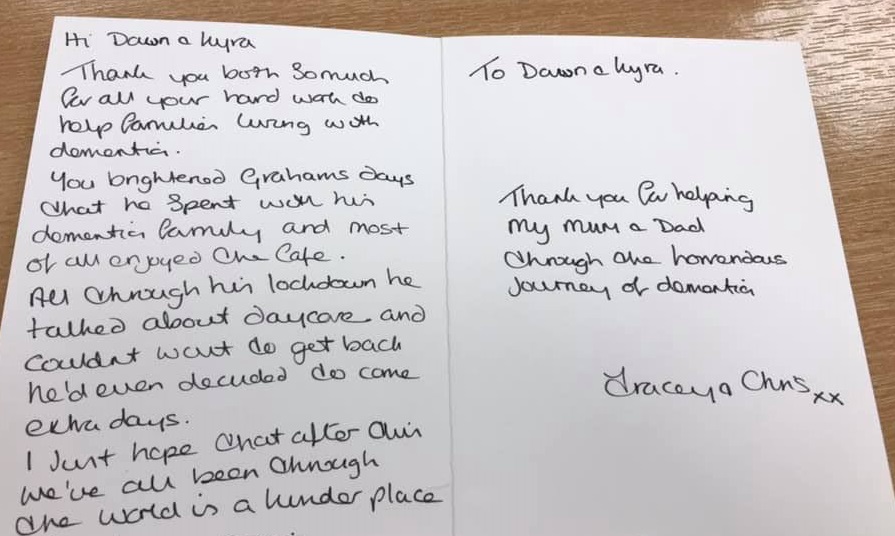 Hi Dawn & Kyra
Thank you both So much
for all your hard work to
help families living with
dementia.
You brightened Grahams days
that he Spent with his
dementia family and most
of all enjoyed the Cafe.
All through his lockdown he
talked about daycare and
Couldnt wait to get back
he'd even decided to come
extra days.
I Just hope that after this
we've all been through
the world is a kinder place
To Dawn & Kyra.
Thank you for helping
My Mum & Dad
through the horrendous
Journey of dementia
Tracey & Chris xx